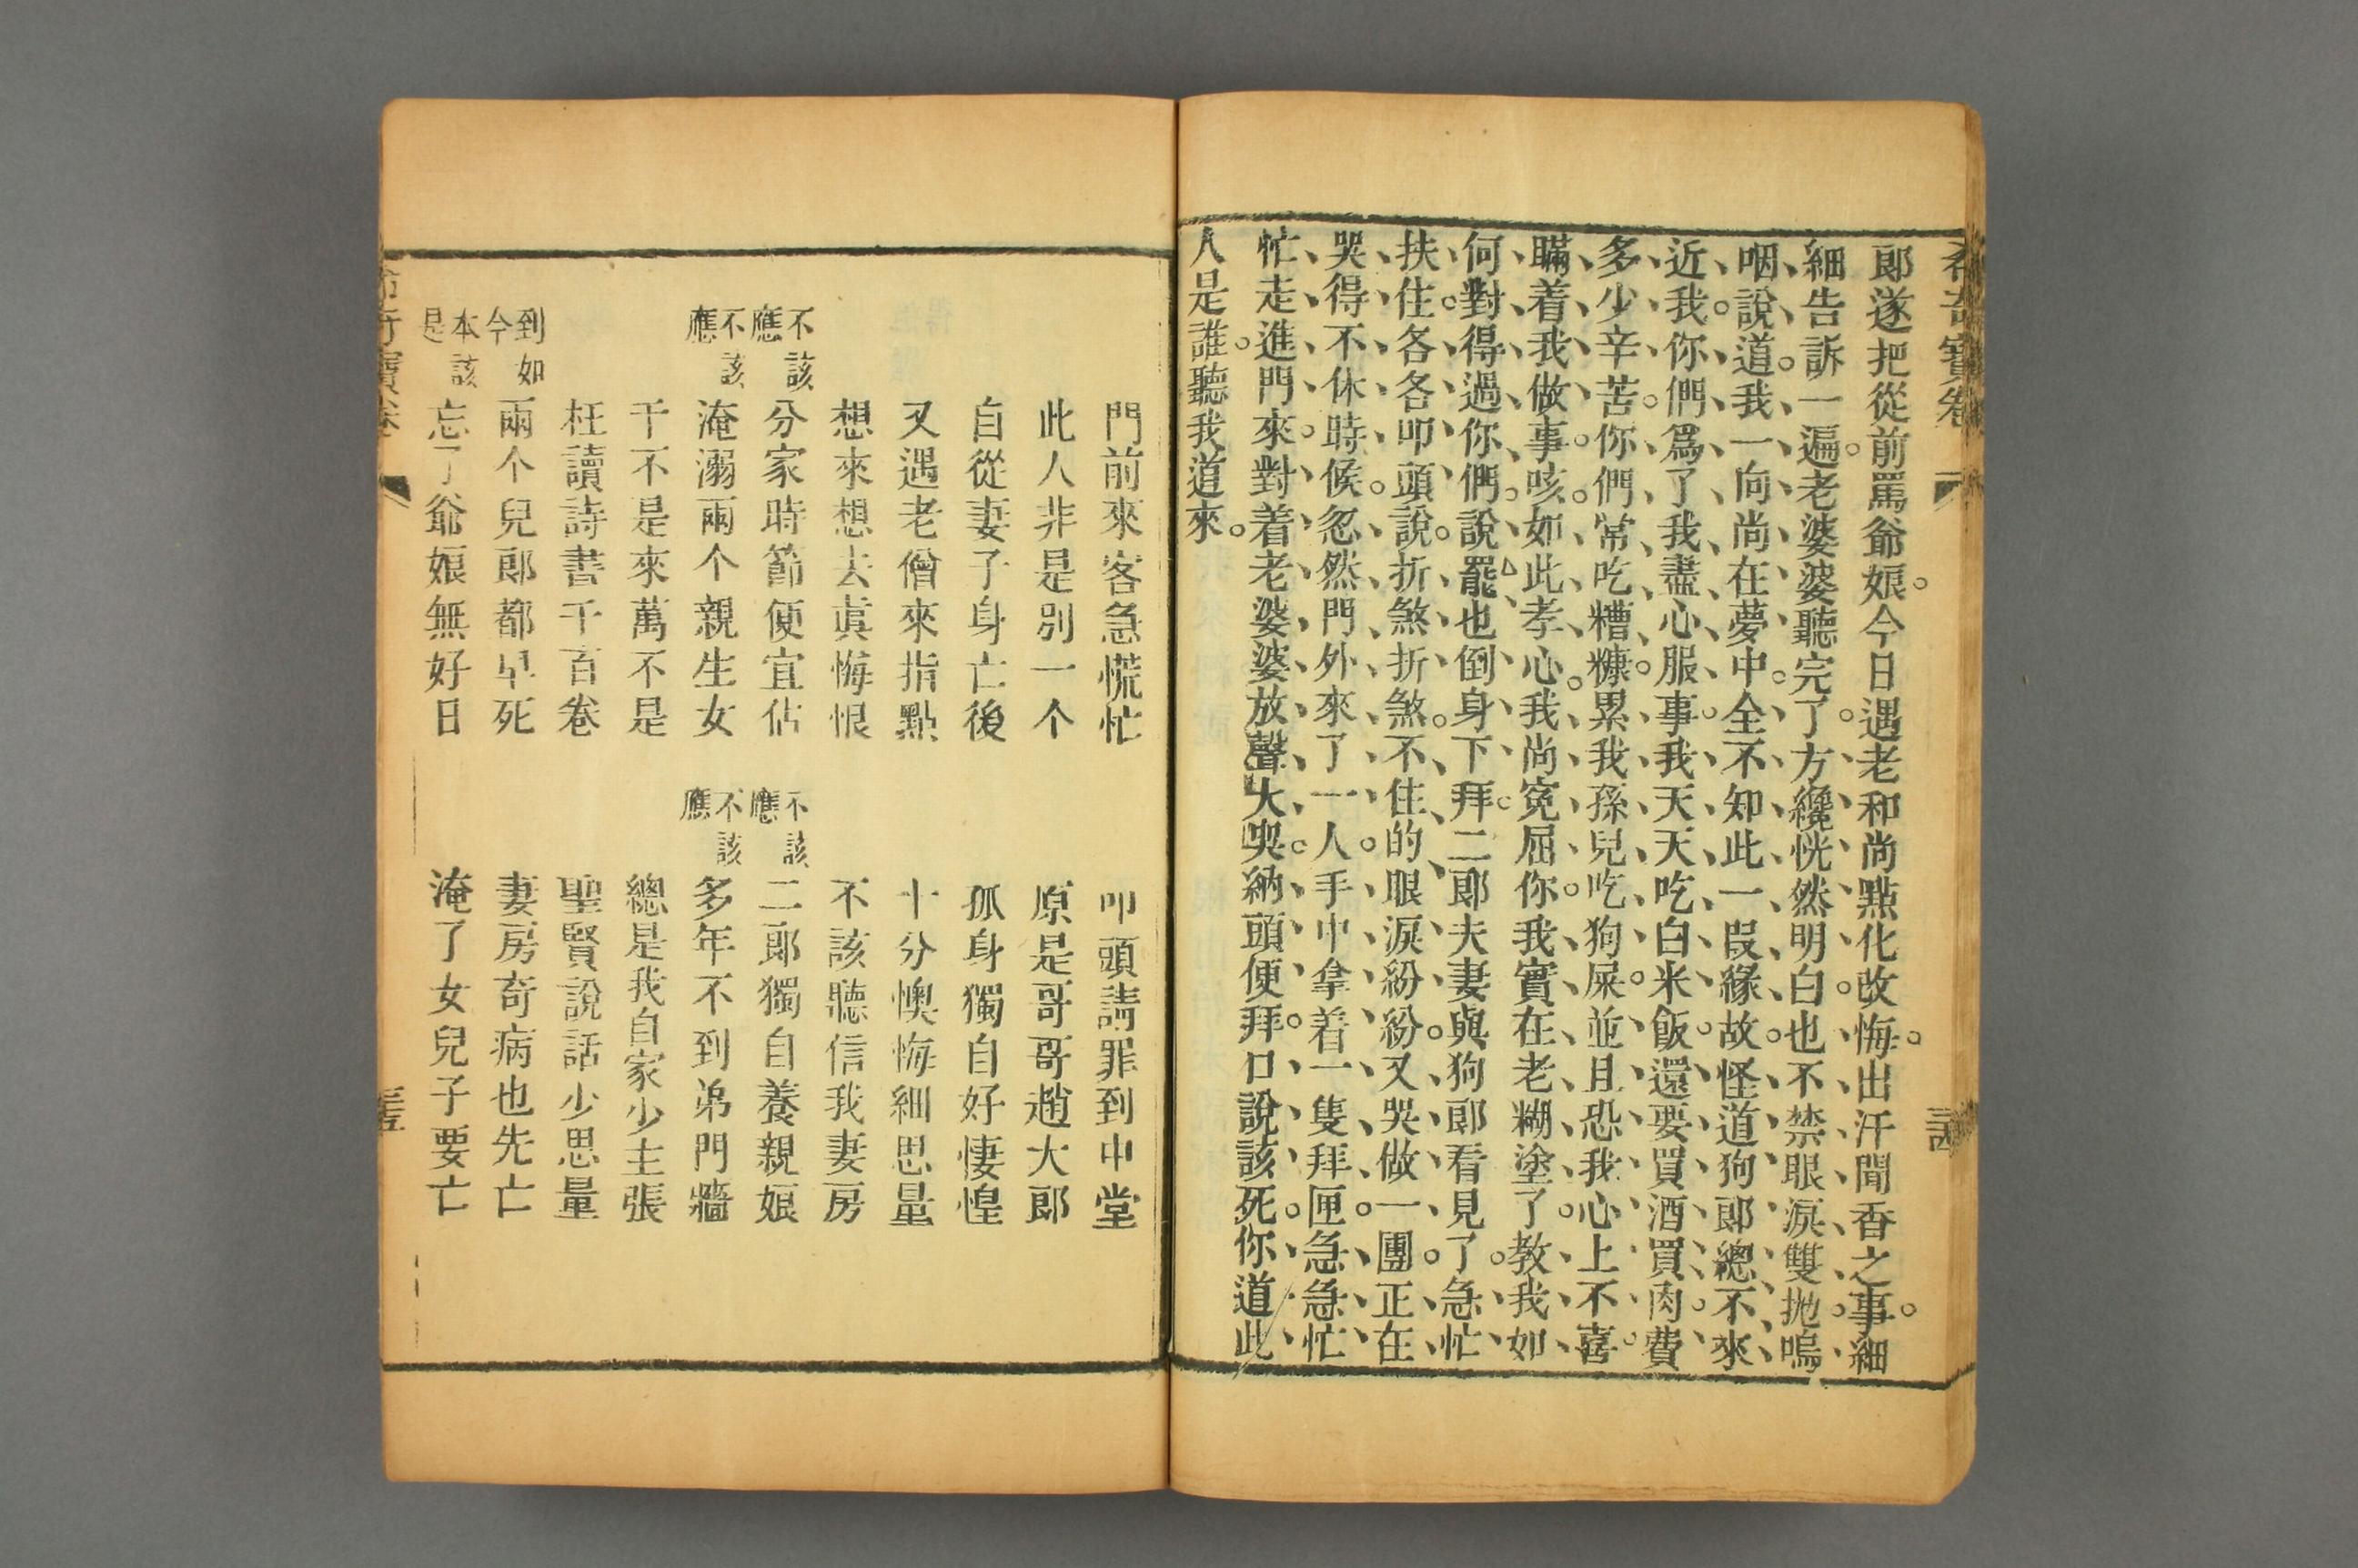 希奇寶卷
三四
郎遂把從前罵爺娘。今日遇老和尚點化改悔。出汗聞香之事。細
細告訴一遍。老婆婆聽完了。方纔恍然明白。也不禁眼淚雙拋。嗚
咽說道。我一向尚在夢中。全不知此一段緣故。怪道狗郎總不來
近我。你們爲了我盡心服事。我天天吃白米飯還要買酒買肉。費
多少辛苦。你們常吃糟糠。累我孫兒吃狗屎。並且恐我心上不喜。
瞞着我做事。咳。如此孝心。我尚寃屈你。我實在老糊塗了。教我如
何對得過你們。說罷也倒身下拜。二郎夫妻與狗郎看見了。急忙
扶住。各各叩頭。說折煞折煞。不住的眼淚紛紛。又哭做一團。正在
哭得不休時候。忽然門外來了一人。手中拿着一隻拜匣。急急忙
忙走進門來。對着老婆婆放聲大哭。納頭便拜。口說該死。你道此
人是誰。聽我道來。
門前來客急慌忙　叩頭請罪到中堂
此人非是別一个　原是哥哥趙大郎
自從妻子身亡後　孤身獨自好悽惶
又遇老僧來指點　十分懊悔細思量
想來想去眞悔恨　不該聽信我妻房
不該應分家時節便宜佔　不該應二郎獨自養親娘
不該應淹溺兩个親生女　不該應多年不到弟門牆
千不是來萬不是　總是我自家少主張
枉讀詩書千百卷　聖賢說話少思量
到如今兩个兒郎都早死　妻房奇病也先亡
本該是忘了爺娘無好日　淹了女兒子要亡
希奇寶卷
三五